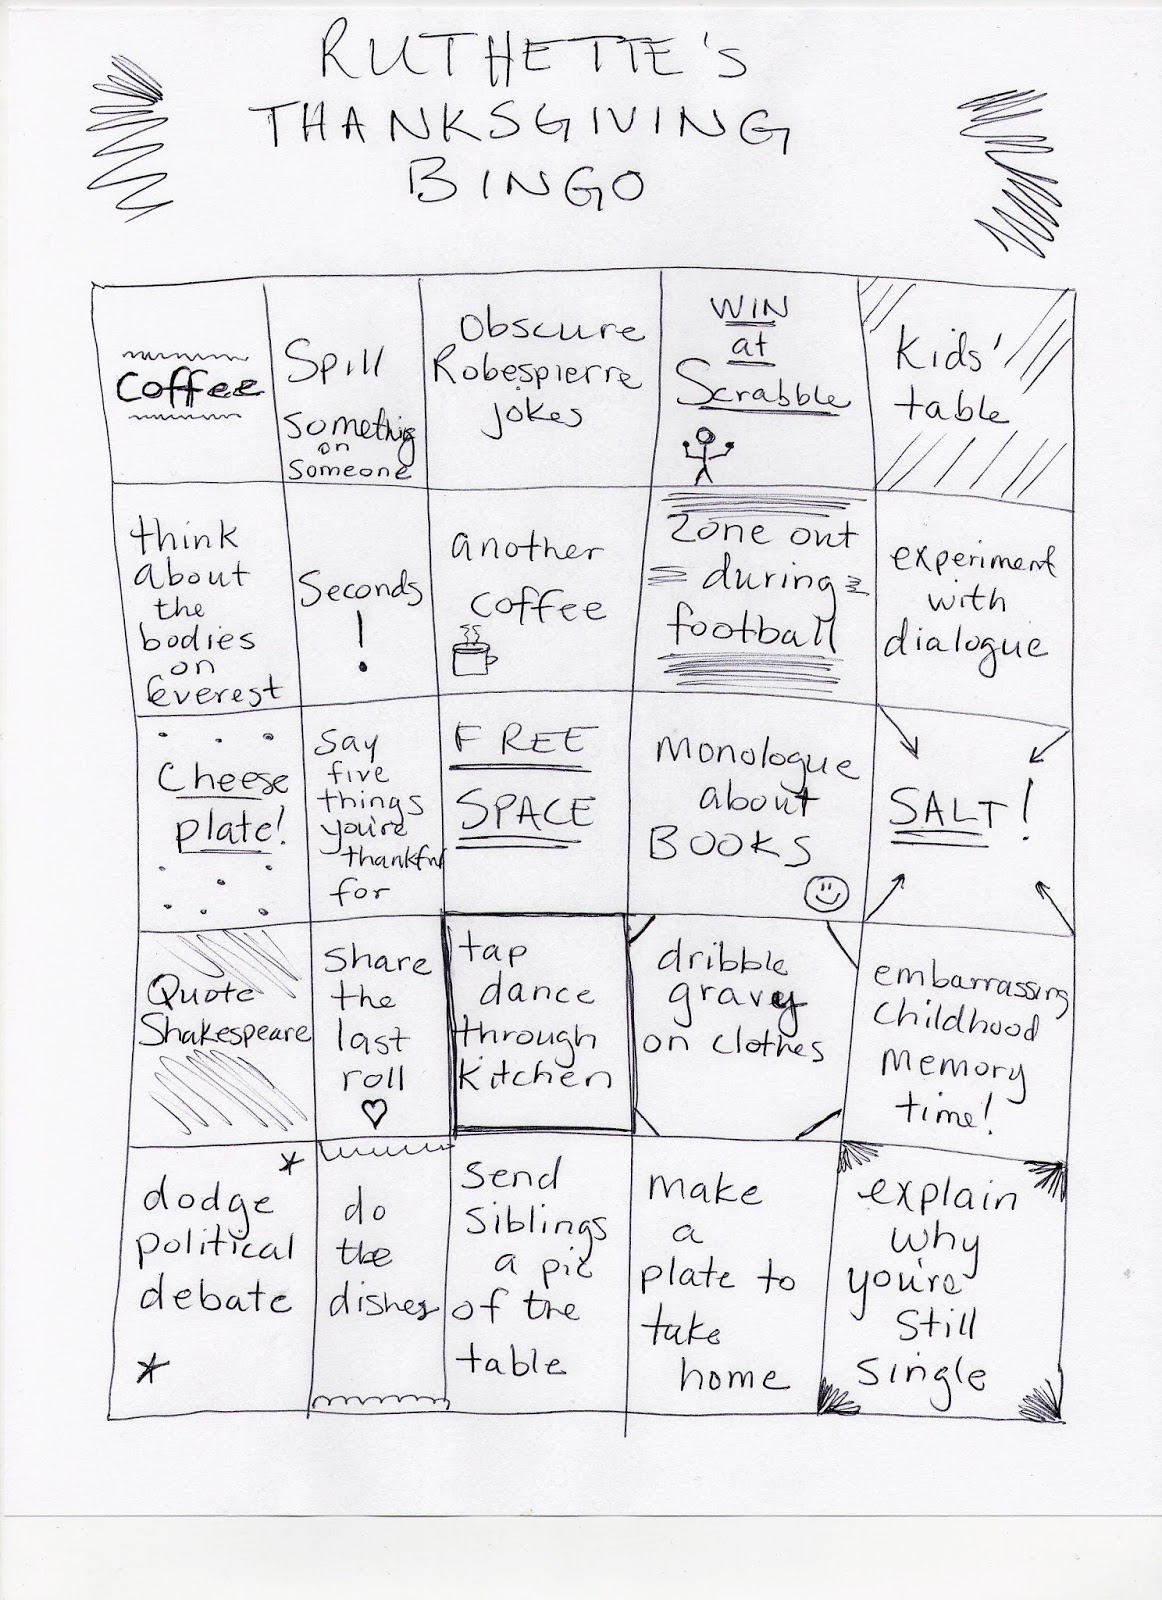 RUTHETTE's
THANKSGIVING
BINGO
Coffee
Spill
something
on
someone
Obscure
Robespierre
jokes
WIN
at
Scrabble
Kids'
table
think
about
the
bodies
on
Everest
Seconds
!
another
coffee
Zone out
during
football
experiment
with
dialogue
Cheese
plate!
say
five
things
you're
thankful
for
FREE
SPACE
Monologue
about
BOOKS
SALT!
Quote
Shakespeare
share
the
last
roll
tap
dance
through
kitchen
dribble
gravy
on clothes
embarrassing
childhood
memory
time!
dodge
political
debate
do
the
dishes
send
siblings
a pic
of the
table
make
a
plate to
take
home
explain
why
you're
still
single